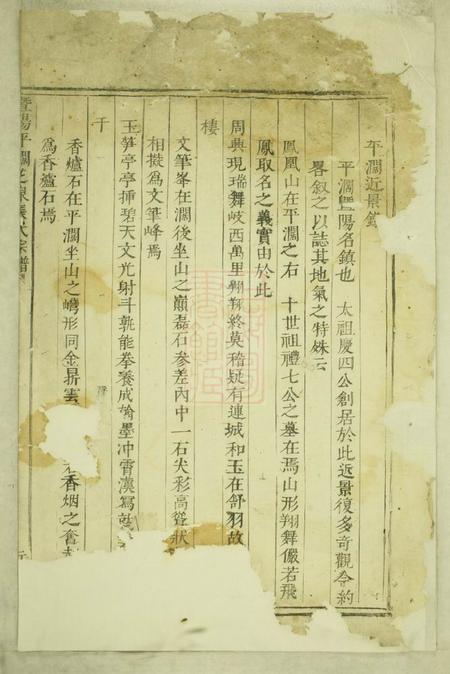 平濶近景錄
平濶曁陽名鎮也 太祖慶四公創居於此近景復多奇觀今約
畧叙之以誌其地氣之特殊云
鳳凰山在平濶之右 十世祖禮七公之墓在焉山形翔舞儼若飛
鳳取名之義實由於此
周興現瑞舞岐西萬里翱翔終莫稽疑有連城和玉在舒羽故
樓
文筆峯在濶後坐山之巔磊石參差內中一石尖彩高聳狀
相擬為文筆峰焉
玉笋亭亭揷碧天文光射斗孰能拳養成
墨冲霄漢寫
千
香爐石在平濶坐山之 形同金昇雲 香烟之奮
為香爐石焉
曁陽平濶 東 氏宗譜